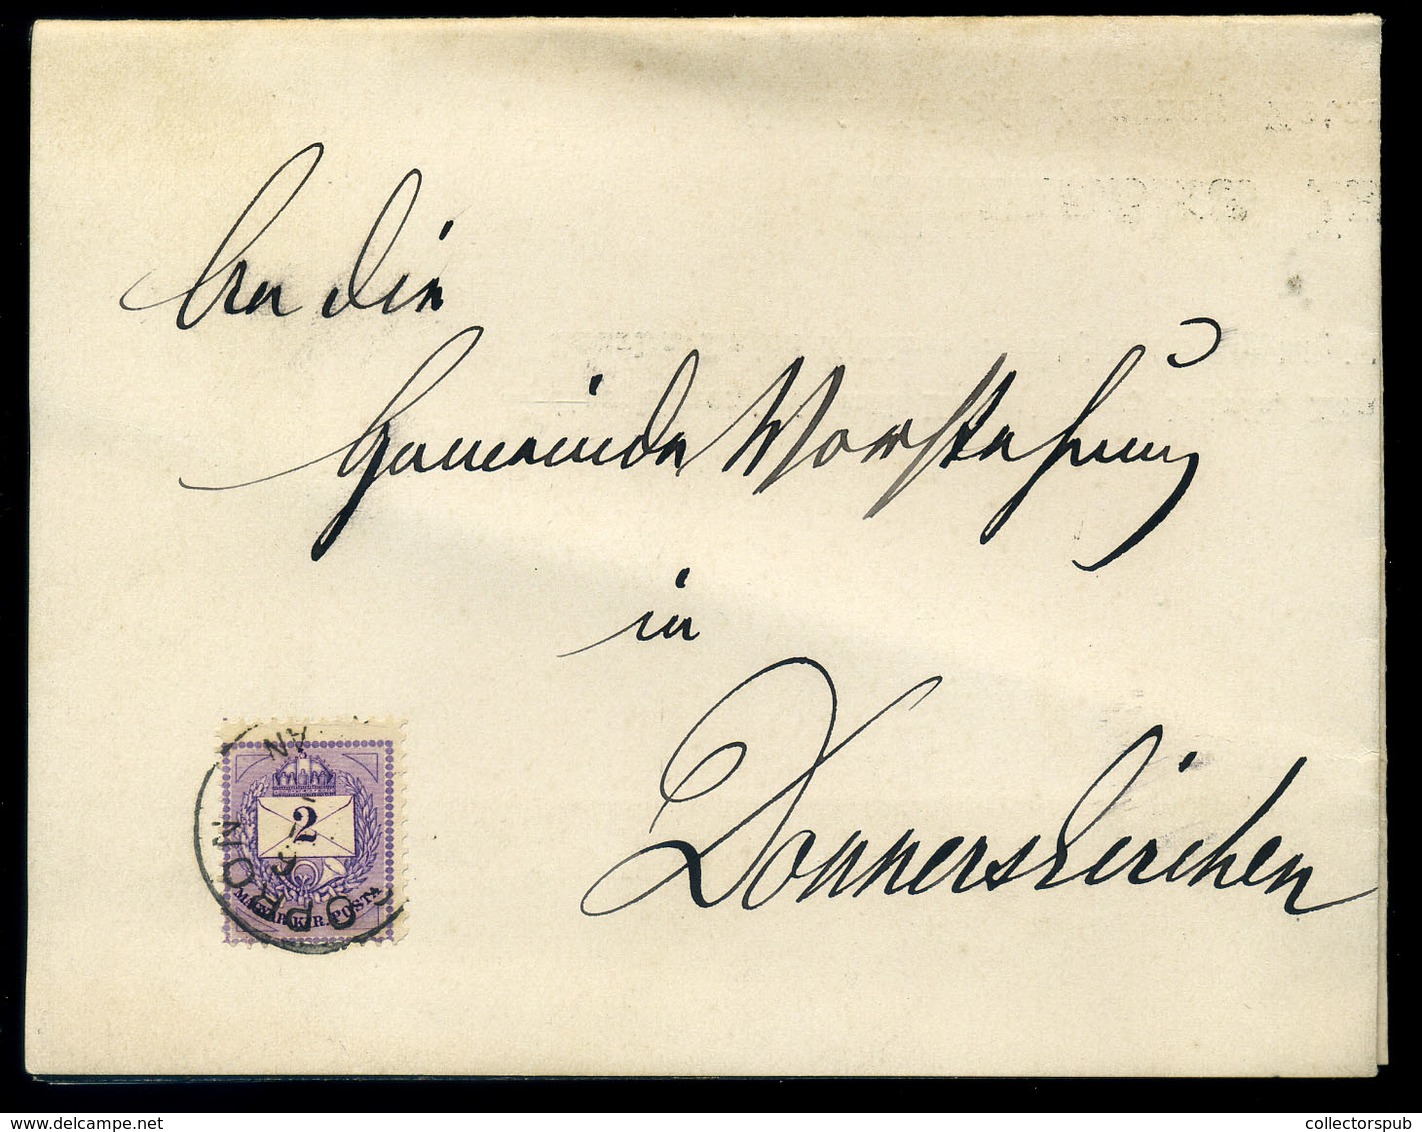 An die
Gemeinde Vorstehung
in
Donnerskirchen
2
MAGYAR KIR. POSTA
SOPRON
collectorspub